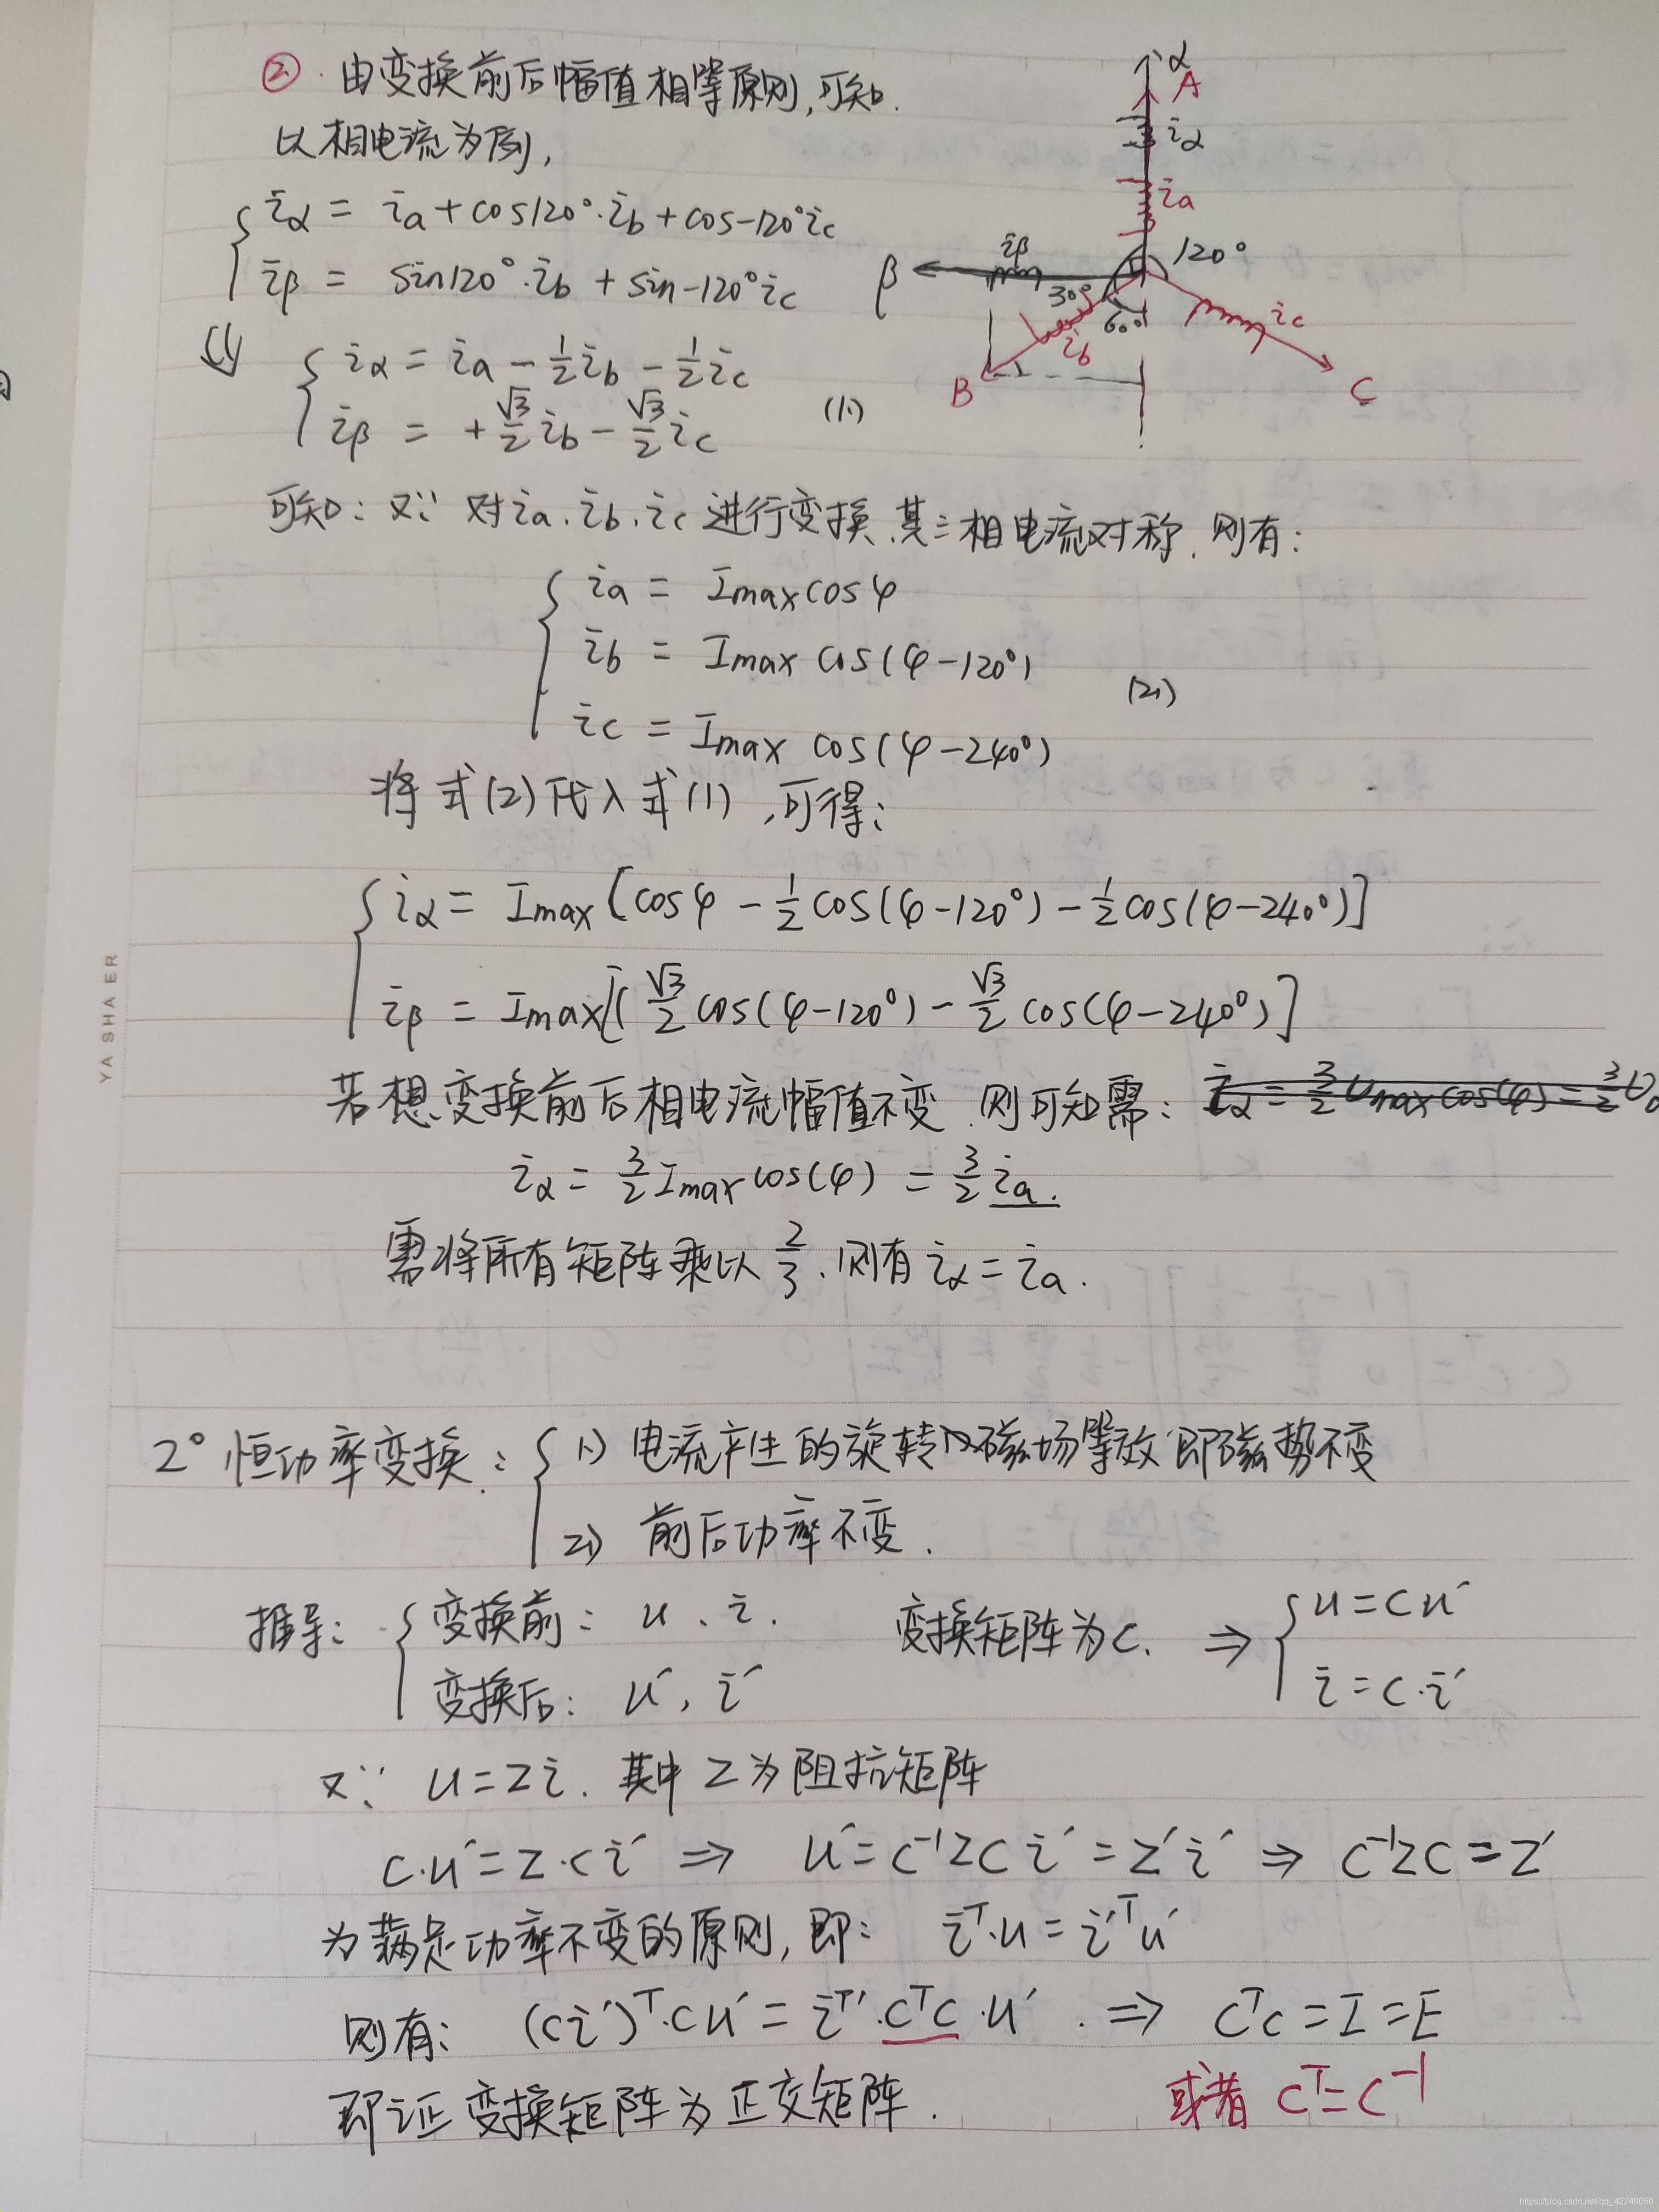 ② 由变换前后幅值相等原则,可知.
以相电流为例,
iα = ia + cos120°·ib + cos-120°ic
iβ = sin120°·ib + sin-120°ic
⇓ iα = ia - 1/2 ib - 1/2 ic
iβ = + √3/2 ib - √3/2 ic (1)
α
A
iα
ia
120°
β
iβ
30°
60°
ib
ic
B
C
可知: 又∵ 对ia、ib、ic进行变换、其三相电流对称, 则有:
ia = Imax cosφ
ib = Imax cos(φ-120°)
(2)
ic = Imax cos(φ-240°)
将式(2)代入式(1),可得:
iα = Imax[cosφ - 1/2 cos(φ-120°) - 1/2 cos(φ-240°)]
iβ = Imax[(√3/2 cos(φ-120°) - √3/2 cos(φ-240°)]
若想变换前后相电流幅值不变.则可知需:
iα = 3/2 Imax cos(φ) = 3/2 ia.
需将所有矩阵乘以 2/3, 则有 iα = ia.
2° 恒功率变换: 1) 电流产生的旋转磁场等效 即磁势不变
2) 前后功率不变.
推导: 变换前: u、i. 变换矩阵为C. ⇒ u=Cu′
变换后: u′, i′ i=C·i′
又∵ u=Zi. 其中Z为阻抗矩阵
C·u′=Z·Ci′ ⇒ u′=C⁻¹ZCi′=Z′i′ ⇒ C⁻¹ZC=Z′
为满足功率不变的原则,即: iᵀ·u=i′ᵀu′
则有: (Ci′)ᵀ·Cu′=iᵀ′·CᵀC·u′. ⇒ CᵀC=I=E
即证变换矩阵为正交矩阵. 或者 Cᵀ=C⁻¹
YASHAER
https://blog.csdn.net/qq_42249050